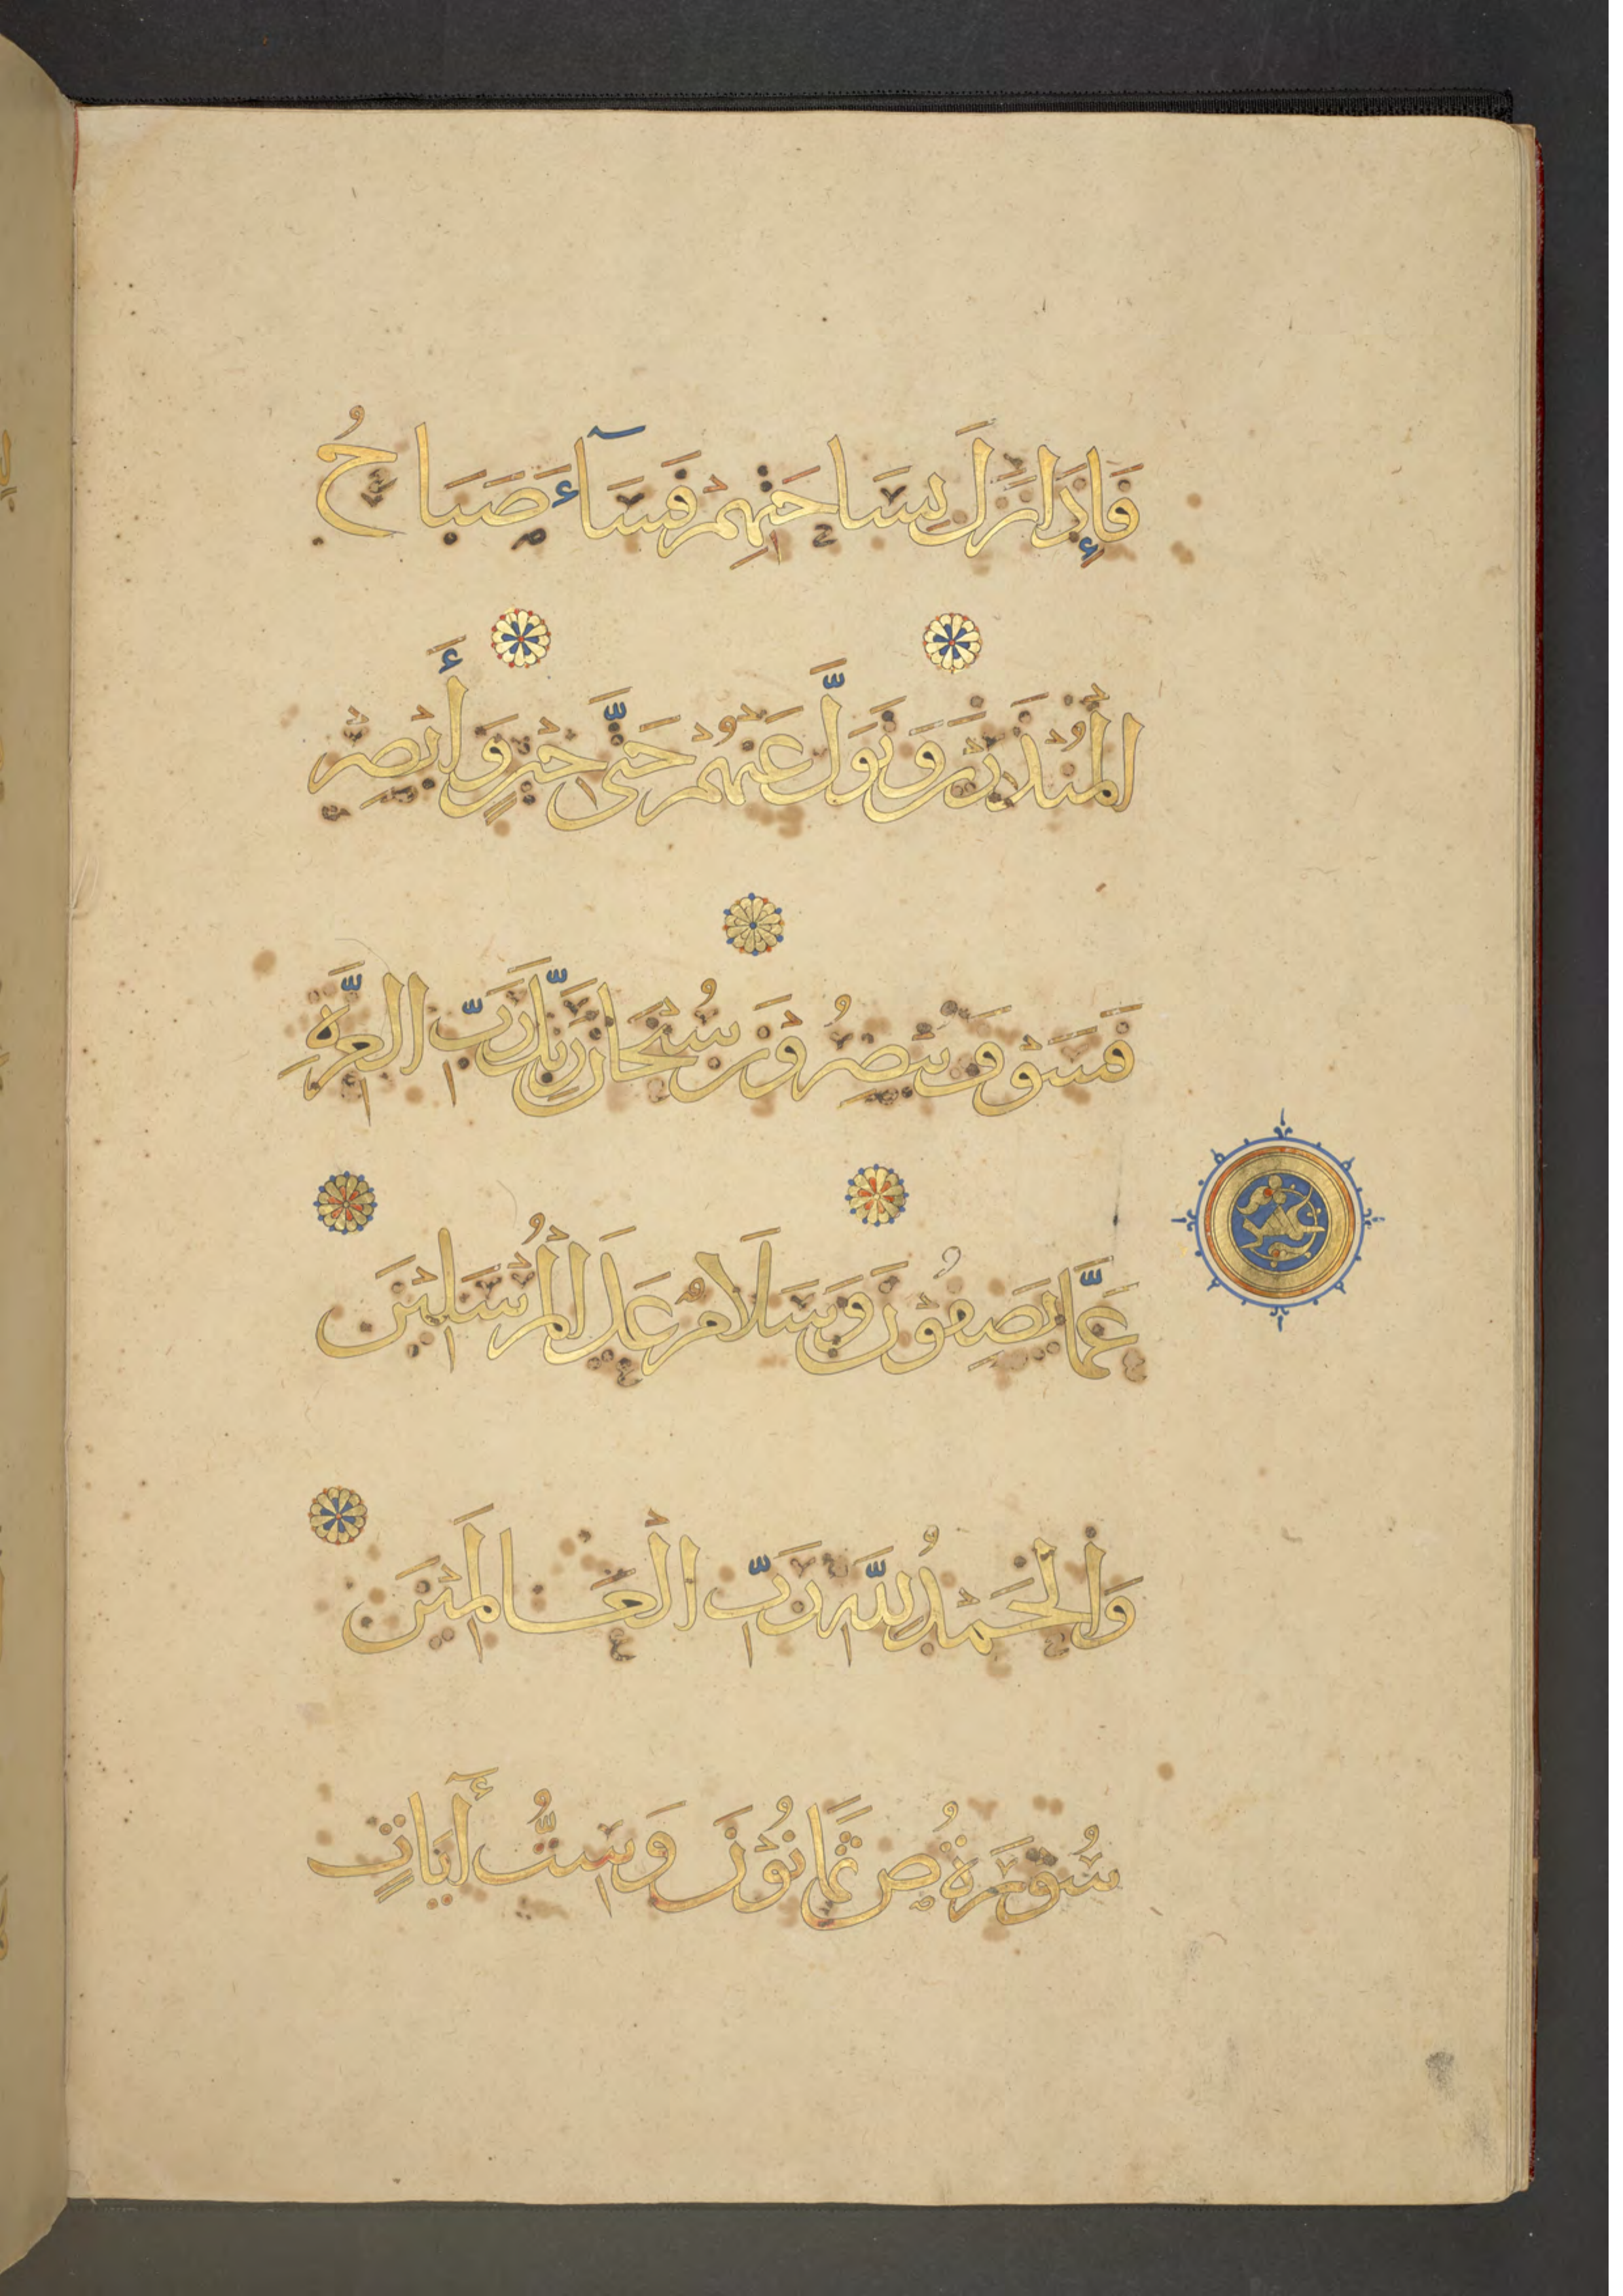 فَإِذَا نَزَلَ بِسَاحَتِهِمْ فَسَآءَ صَبَاحُ
الْمُنْذَرِيْنَ وَتَوَلَّ عَنْهُمْ حَتَّى حِيْنٍ وَأَبْصِرْ
فَسَوْفَ يُبْصِرُوْنَ سُبْحَانَ رَبِّكَ رَبِّ الْعِزَّةِ
عَمَّا يَصِفُوْنَ وَسَلَامٌ عَلَى الْمُرْسَلِيْنَ
وَالْحَمْدُ لِلّٰهِ رَبِّ الْعَالَمِيْنَ
سُوْرَةُ ص ثَمَانُوْنَ وَسِتُّ أٓيَاتٍ